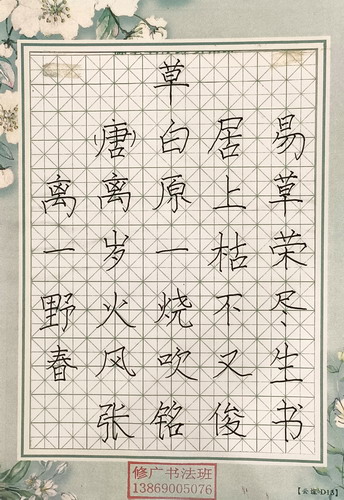 草
(唐)白居易
离离原上草
一岁一枯荣
野火烧不尽
春风吹又生
张铭俊书
修广书法班
13869005076